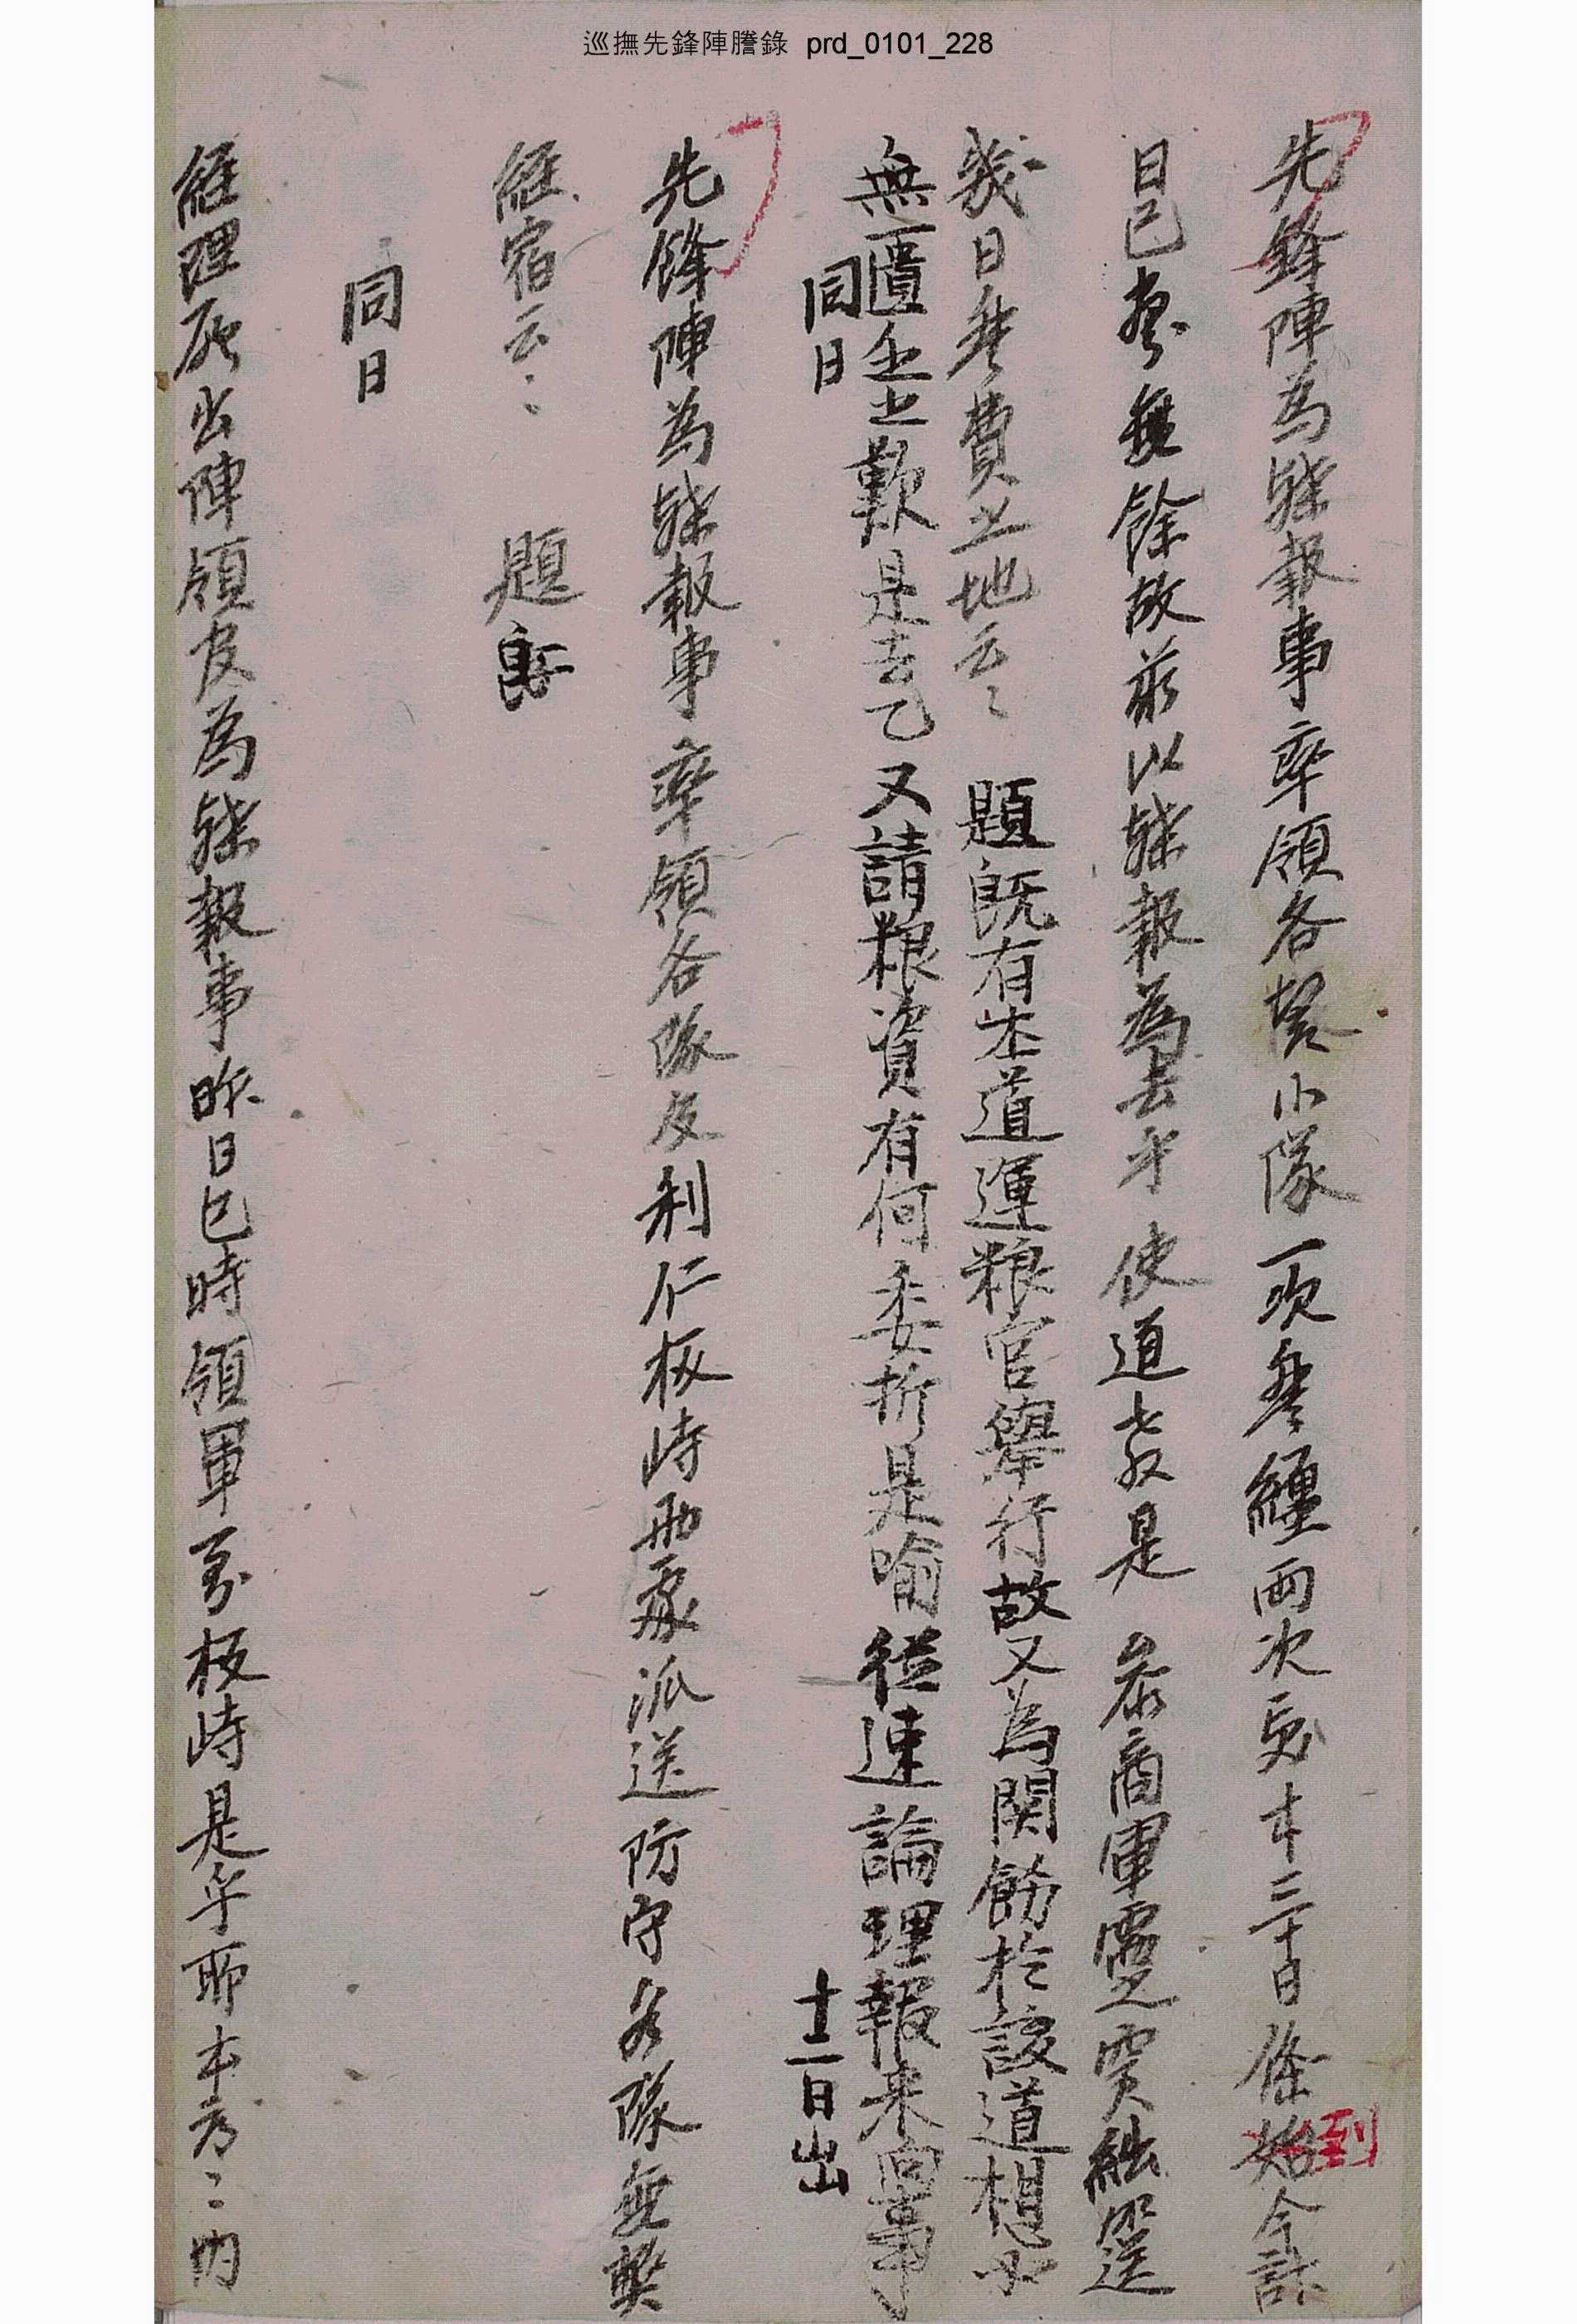 巡撫先鋒陣謄錄 prd_0101_228
先鋒陣為牒報事率領各哨小隊一次糸纏兩次文本三十日條始到今計
日已盡無餘故玆以牒報為去乎使道教是參商軍需實絀選
幾日糸費之地云云 題既有本道運粮官舉行故又為関飭於該道想必
無匱乏之歎是去乙又請粮資有何委折是喻從速論理報來向事
同日 十二日出
先鋒陣為牒報事率領各隊及利仁板峙兩處派送防守各隊無獘
經宿云云 題到
同日
經理廳出陣領官為牒報事昨日巳時領軍到板峙是乎所本參領內